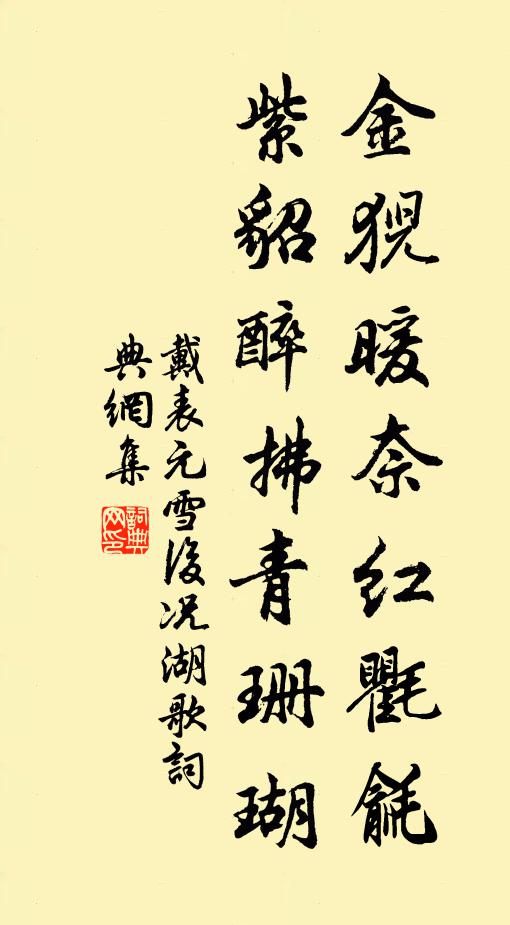 金猊暖奈红氍毹
紫貂醉拂青珊瑚
戴表元雪後况湖歌詞
典網集
詞典网印